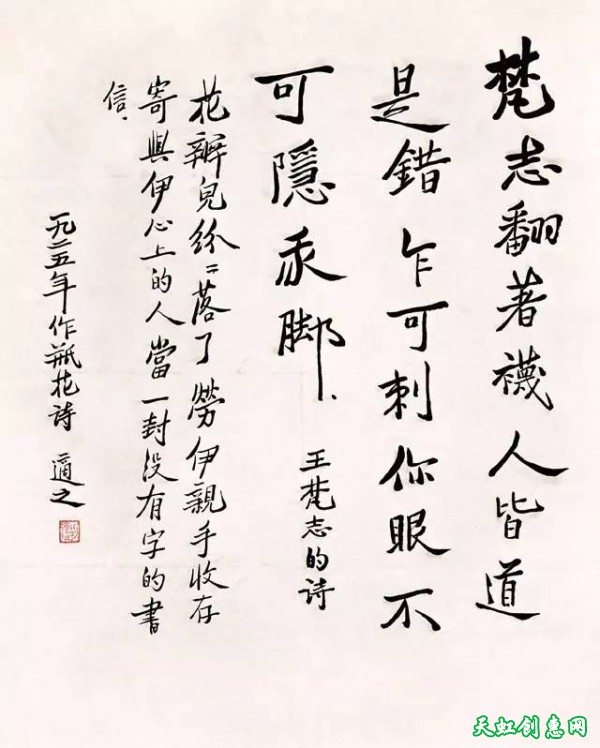 梵志翻著襪人皆道
是錯乍可刺你眼不
可隱我脚、
王梵志的诗
花瓣兒紛〻落了勞伊親手收存
寄與伊心上的人當一封没有字的書
信、
一九二五年作瓶花诗 適之
天虹创意网